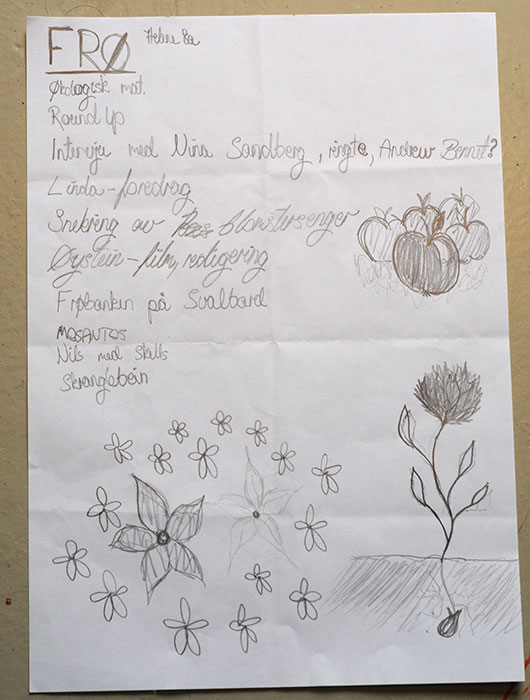 FRØ
Helene 8a
Økologisk mat.
Round Up
Intervju med Nina Sandberg, ringte, Andrew Bennit?
Linda-foredrag
Snekring av blomstersenger
Øystein-film, redigering
Frøbanken på Svalbard
MOSANTOS
Nils med Skills
Skranglebein